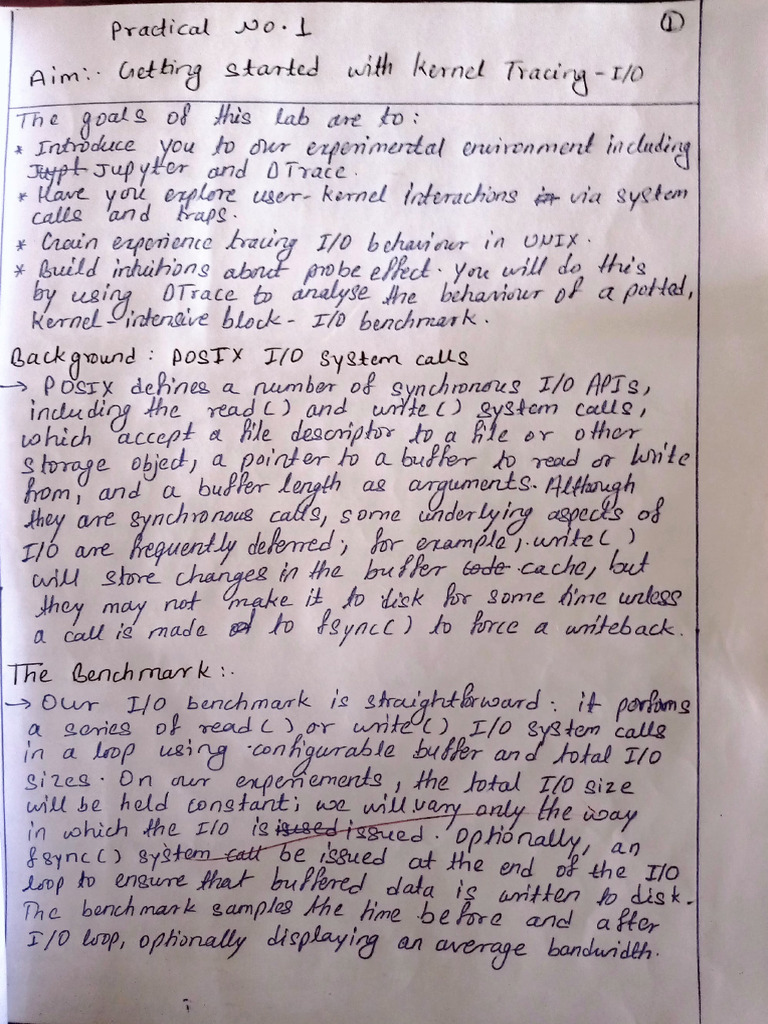 ①
Practical No. 1
Aim:- Getting started with Kernel Tracing - I/O
The goals of this lab are to:
* Introduce you to our experimental environment including
Jupyter and DTrace.
* Have you explore user-kernel interactions via system
calls and traps.
* Gain experience tracing I/O behaviour in UNIX.
* Build intuitions about probe effect. You will do this
by using DTrace to analyse the behaviour of a potted,
Kernel-intensive block-I/O benchmark.
Background: POSIX I/O system calls
→ POSIX defines a number of synchronous I/O APIs,
including the read() and write() system calls,
which accept a file descriptor to a file or other
storage object, a pointer to a buffer to read or write
from, and a buffer length as arguments. Although
they are synchronous calls, some underlying aspects of
I/O are frequently deferred; for example, write()
will store changes in the buffer cache, but
they may not make it to disk for some time unless
a call is made to fsync() to force a writeback.
The Benchmark:-
→ Our I/O benchmark is straightforward: it performs
a series of read() or write() I/O system calls
in a loop using configurable buffer and total I/O
sizes. On our experiements, the total I/O size
will be held constant; we will vary only the way
in which the I/O is issued. Optionally, an
fsync() system call be issued at the end of the I/O
loop to ensure that buffered data is written to disk.
The benchmark samples the time before and after
I/O loop, optionally displaying an average bandwidth.